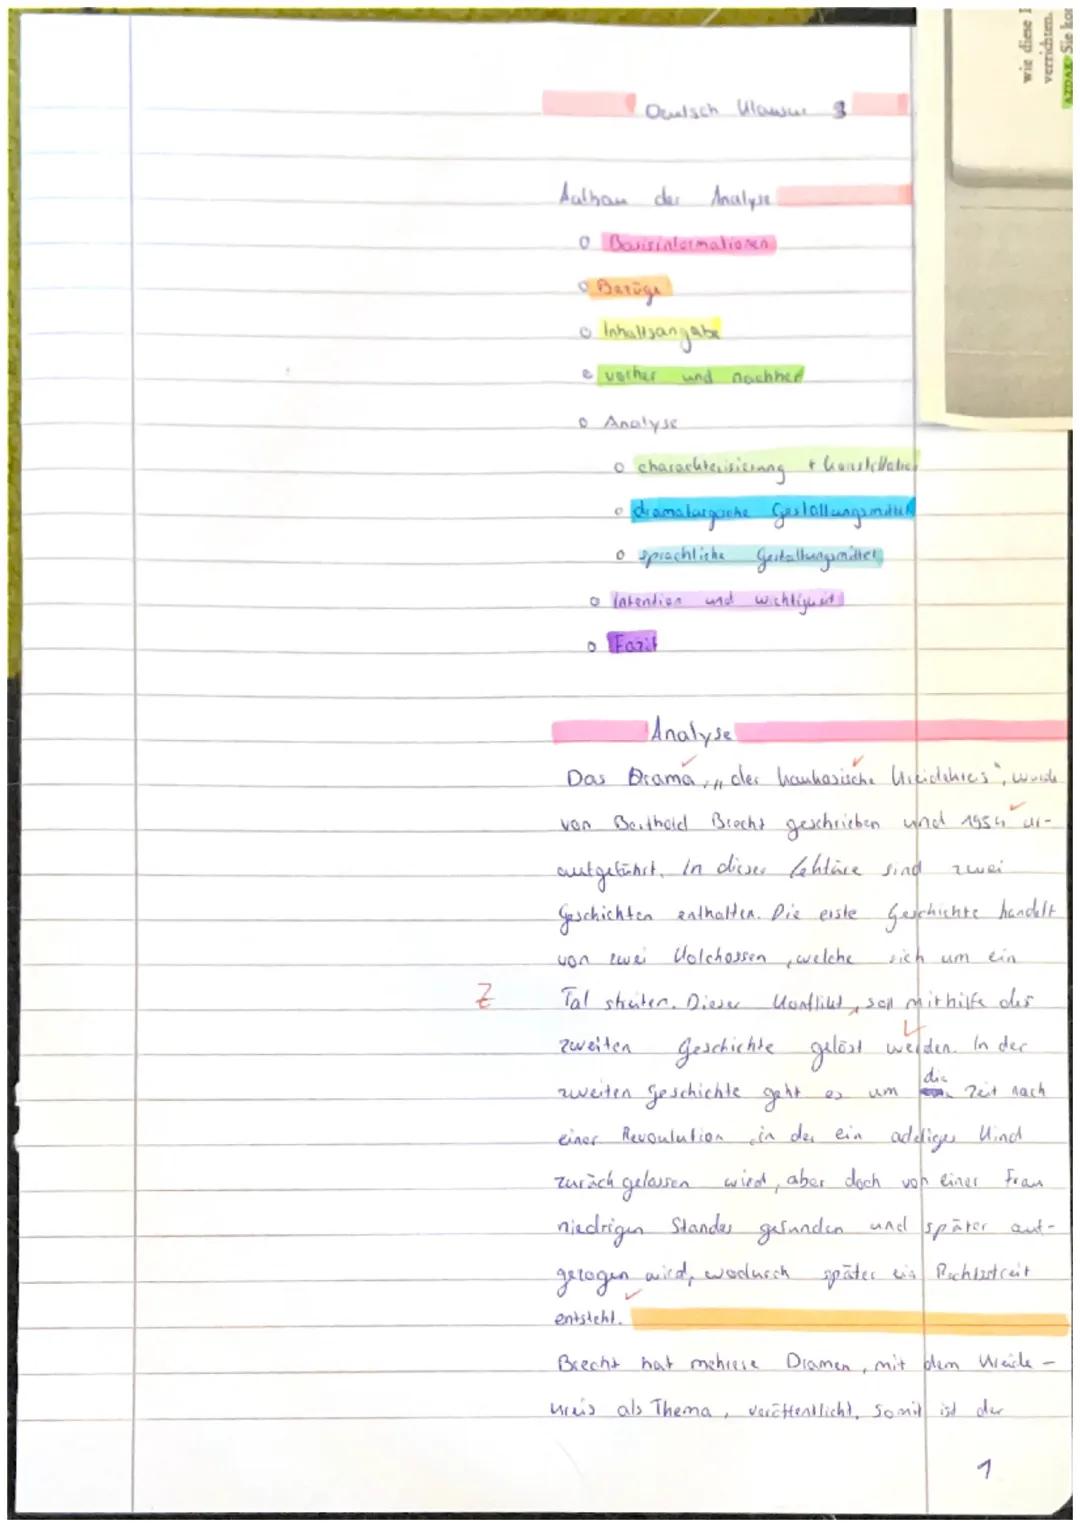 wie diese
verrichten.
AZDAK Sie
Deutsch Klausur 3
Aufbau der Analyse
Basisinformationen
Bezüge
Inhaltsangabe
vorher und nachher
Analyse
charackterisierung + Konstellation
dramaturgische Gestaltungsmittel
sprachliche Gestaltungsmittel
Intention und wichtigkeit
Fazit
Analyse
Das Drama, „der kaukasische Kreidekreis", wurde
von Berthold Brecht geschrieben und 1954 ur-
aufgeführt. In dieser Lektüre sind zwei
Geschichten enthalten. Die erste Geschichte handelt
von zwei Kolchossen, welche sich um ein
Z Tal streiten. Dieser Konflikt, soll mithilfe der
zweiten Geschichte gelöst werden. In der
zweiten Geschichte geht es um die Zeit nach
einer Revoulution, in der ein addliges Kind
zurück gelassen wird, aber doch von einer Frau
niedrigen Standes gefunden und später auf-
gezogen wird, wodurch später ein Rechtsstreit
entsteht.
Brecht hat mehrere Dramen, mit dem Kreide-
kreis als Thema, veröffentlicht. Somit ist der
1